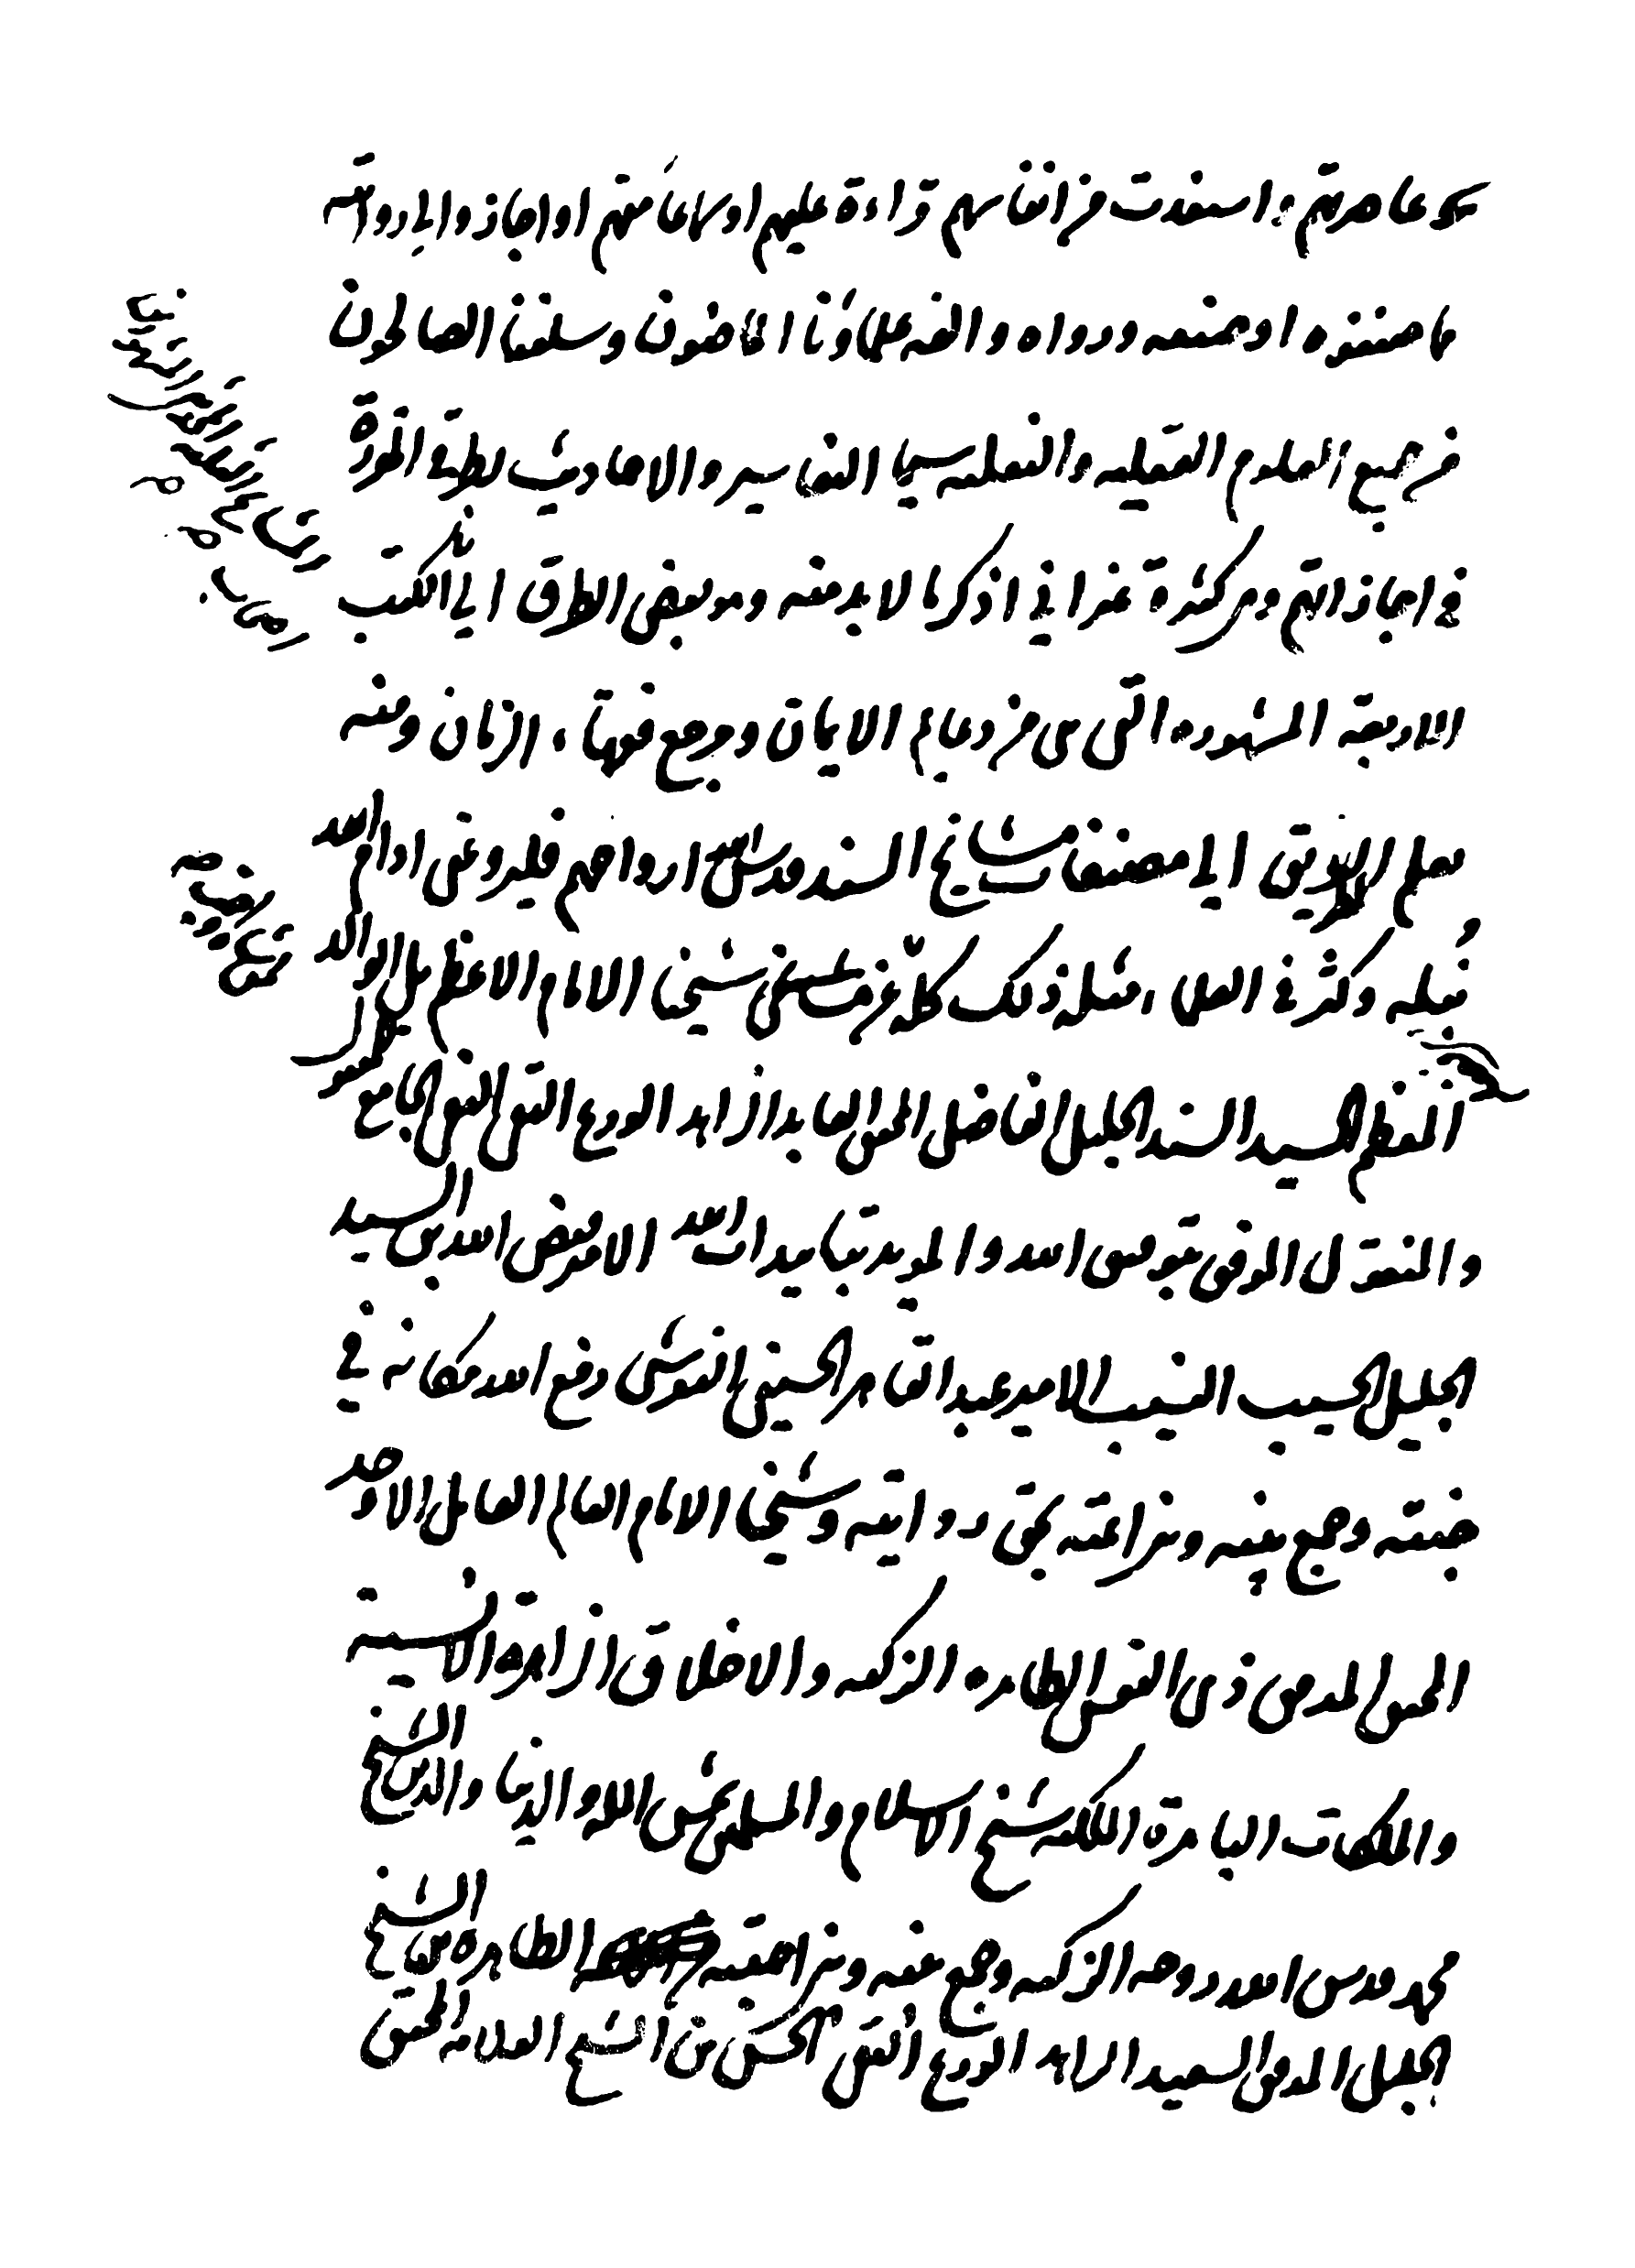 عاصرتهم واستفدت من انفاسهم قراءة عليهم او سماعا منهم او اجازة والى روايته
ما صنفوه او جمعه ورواه والفه علماؤنا الماضون وسلفنا الصالحون
من جميع العلوم العقليه والنقليه سيما التفاسير والاحاديث بطرقى المقررة
فى اجازاتهم وهى كثيرة غير انى اذكر ما لا بد منه وهو بعض الطرق الى الكتب
الاربعة المشهوره التى هى من دعايم الايمان ومرجع فقهاء الزمان ومنه
يعلم الطريق الى مصنفات مشايخ السند قدس الله ارواحهم فليرو عنى ادام الله
نبله وكثر فى العلماء مثله ذلك كله عن شيخنا الامام الاعظم بل الوالد
المعظم السيد السند الجليل الفاضل المحقق العابد الزاهد الورع التقى النقى الجامع للمعقول
والمنقول الموفق بتوفيق الله والمويد بتاييدات الله الامير فيض الله بن السيد
الجليل الحسيب النسيب الامير عبد القاهر الحسينى التفرشى رفع الله مكانه فى
جنته وجمع بينه وبين ائمته بحق روايته وشيخى الامام العالم العامل الاوحد
المحقق المدقق ذى النفس الطاهره الزكيه والاخلاق الزاهرة الانسية
والملكات الباهرة الملكيه شيخ الاسلام والمسلمين شمس المله والدنيا والدين الشيخ
محمد قدس الله روحه الزكيه وجمع بينه وبين احبته الطاهره من الشيخ
الجليل المدقق السعيد الزاهد الورع التقى الحسن بن الشيخ العلامه المحقق